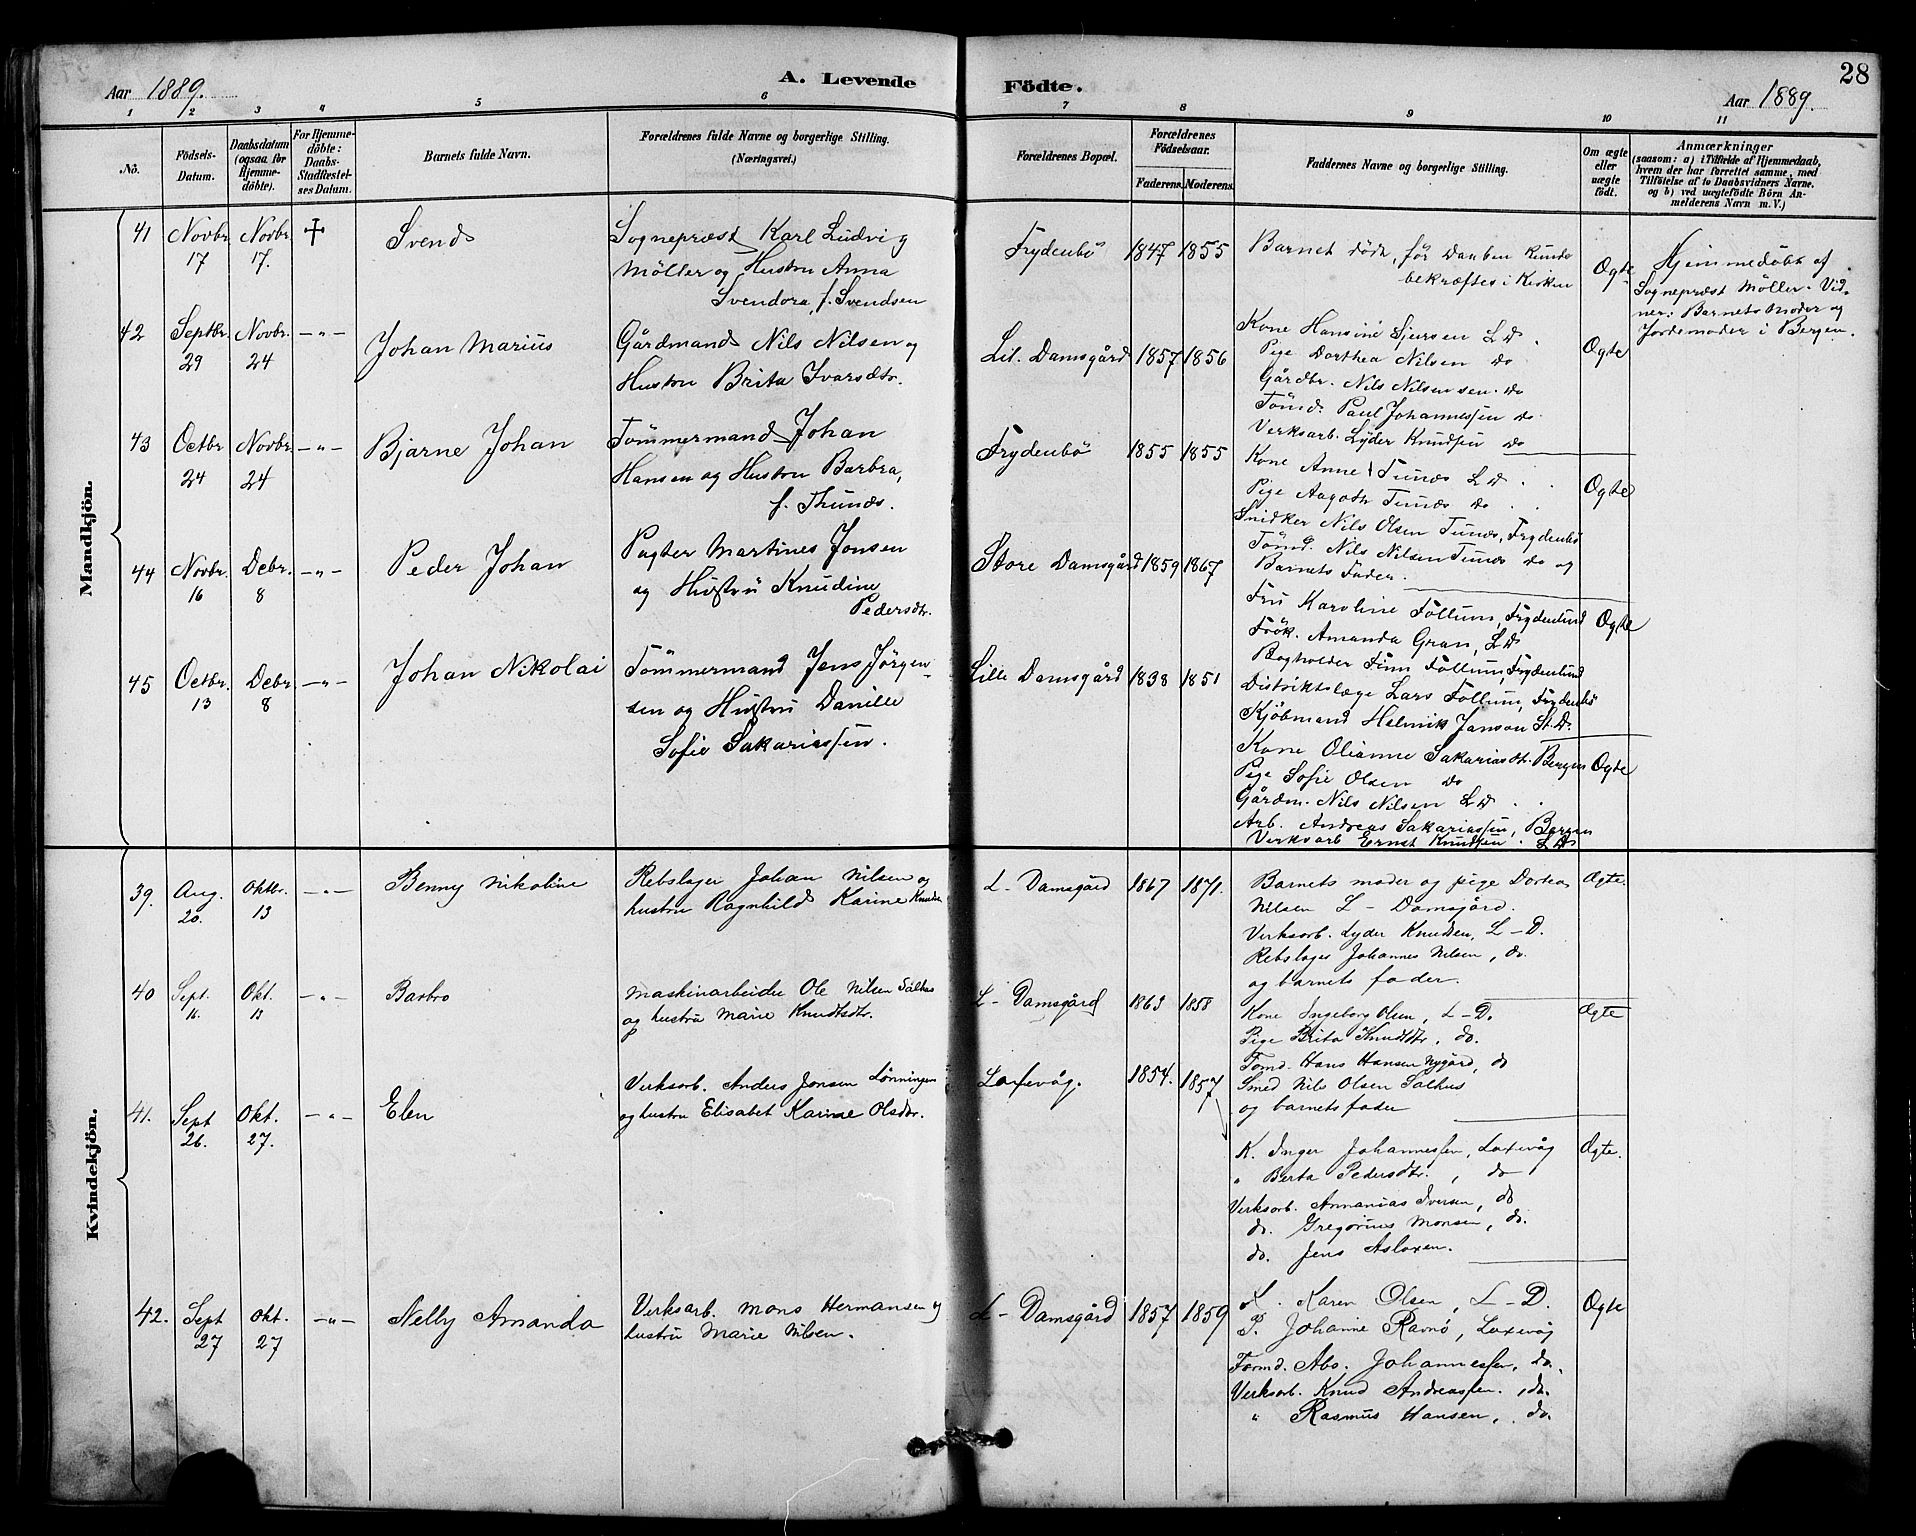 Aar 1889.
A. Levende
Födte.
28
Aar 1889.
1 2 3 4 5 6 7 8 9 10 11
No.
Födsels-
Datum.
Daabsdatum
(ogsaa for
Hjemme-
döbte).
For Hjemme-
döbte:
Daabs-
Stadfæstel-
ses Datum.
Barnets fulde Navn.
Forældrenes fulde Navne og borgerlige Stilling.
(Næringsvei.)
Forældrenes Bopæl.
Forældrenes
Födselsaar.
Faderens. Moderens.
Faddernes Navne og borgerlige Stilling.
Om ægte
eller
uægte
født.
Anmærkninger
(saasom: a) i Tilfælde af Hjemmedaab,
hvem der har forrettet samme, med
Tilføielse af to Daabsvidners Navne.
og b) ved uægtefödte Börn An-
melderens Navn m. V.)
Mandkjön.
41
Novbr.
17
Novbr.
17.
Svend
Sognepræst Karl Ludvig
Möller og Hustru Anna
Svendora, f. Svendsen
Frydenbö
1847 1855
Barnet döde, før Daaben kunde
bekræftes i Kirken
Ægte
Hjemmedöbt af
Sognepræst Möller. Vid-
ner: Barnets Moder og
Jordemoder i Bergen.
42
Septbr.
29
Novbr.
24
-"-
Johan Marius
Gårdmand Nils Nilsen og
Hustru Brita Ivarsdtr.
Lil. Damsgård
1857 1856
Kone Hansine Sjursen L D
Pige Dorthea Nilsen do
Gårdbr. Nils Nilsen sen. do
Tömd. Paul Johannessen do
Verksarb. Lyder Knudsen do
Ægte
43
Octbr.
24
Novbr.
24
-"-
Bjarne Johan
Tömmermand Johan
Hansen og Hustru Barbra,
f. Thunæs.
Frydenbö
1855 1855
Kone Anne Tunæs L D
Pige Aagoth Tunæs do
Snidker Nils Olsen Tunæs, Frydenbö
Tömd. Nils Nilsen Tunæs do og
Barnets Fader.
Ægte
44
Novbr.
16
Debr.
8
-"-
Peder Johan
Pagter Martines Jonsen
og Hustru Knudine
Pedersdtr.
Store Damsgård
1859 1867
Fru Karoline Follum, Frydenlund
Frök. Amanda Gran, L D
Bogholder Finn Follum, Frydenlund
Distriktslæge Lars Follum, Frydenbö
Kjöbmand Helmik Janson St. D.
Ægte
45
Octbr.
13
Debr.
8
-"-
Johan Nikolai
Tömmermand Jens Jörgen-
sen og Hustru Danille
Sofie Sakariassen.
Lille Damsgård
1838 1851
Kone Olianne Sakariasdtr. Bergen
Pige Sofie Olsen do
Gårdm. Nils Nilsen L D
Arb. Andreas Sakariassen, Bergen
Verksarb Ernst Knudsen L D
Ægte
Kvindekjön.
39.
Aug.
20.
Oktbr.
13
-"-
Benny Nikoline
Rebslager Johan Nilsen og
hustru Ragnhild Karine Knudsen
L- Damsgård
1867 1871.
Barnets moder og pige Dortea
Nilsen L - Damsgård.
Verksarb. Lyder Knudsen, L-D.
Rebslager Johannes Nilsen, do.
og barnets fader.
Ægte.
40
Sept.
16.
Okt.
13
-"-
Barbro
Maskinarbeider Ole Nilsen Salhus
og hustru Marie Knudtsdtr.
L- Damsgård
1863 1858
Kone Ingeborg Olsen, L-D.
Pige Brita Knudtdtr, do.
Tömd. Hans Hansen Nygård, do
Smed Nils Olsen Salhus
og barnets fader
Ægte
41.
Sept
26.
Okt.
27.
-"-
Elen
Verksarb. Anders Jonsen Lönningen
og hustru Elisabet Karine Olsdtr.
Laxevåg.
1854. 1857
K. Inger Johannessen, Laxevåg
" Berta Pedersdtr., do
Verksarb. Annanias Iversen, do
do. Gregorius Monsen, do.
do. Jens Aslaxen.
Ægte.
42.
Sept
27
Okt.
27
-"-
Nelly Amanda
Verksarb. Mons Hermansen og
hustru Marie Nilsen.
L- Damsgård
1857 1859
K. Karen Olsen, L-D.
P. Johanne Ravnö, Laxevåg
Tömd. Abs. Johannessen, do.
Verksarb. Knud Andreassen, do.
" Rasmus Hansen, do.
Ægte